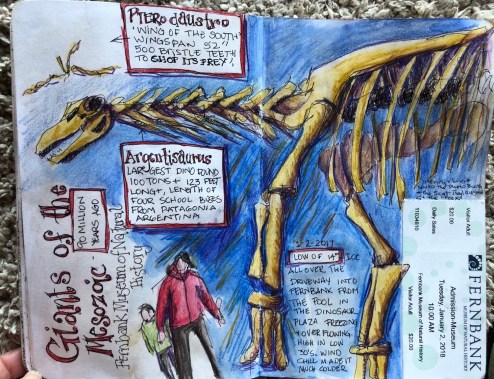 PTERODAUSTRO
"WING OF THE SOUTH"
WINGSPAN 52"
500 BRISTLE TEETH
TO CHOP ITS PREY!
Argentisaurus
LARGEST DINO FOUND
100 TONS + 123 FEET
LONG+, LENGTH OF
FOUR SCHOOL BUSES
FROM PATAGONIA,
ARGENTINA
Giants of the
Mesozoic -
90 MILLION
YEARS AGO
Fernbank Museum of Natural
History
1-2-2017
LOW OF 14° ICE
ALL OVER THE
DRIVEWAY INTO
FERNBANK FROM
THE POOL IN
THE DINOSAUR
PLAZA FREEZING
+ OVERFLOWING
HIGH IN LOW
30'S. WIND
CHILL MADE IT
MUCH COLDER
Visitor Adult
$20.00
Daily Sales
FERNBANK
MUSEUM OF NATURAL HISTORY
Admission-Museum
Tuesday, January 2, 2018
10:00 AM
Fernbank Museum of Natural History
Visitor Adult
$20.00